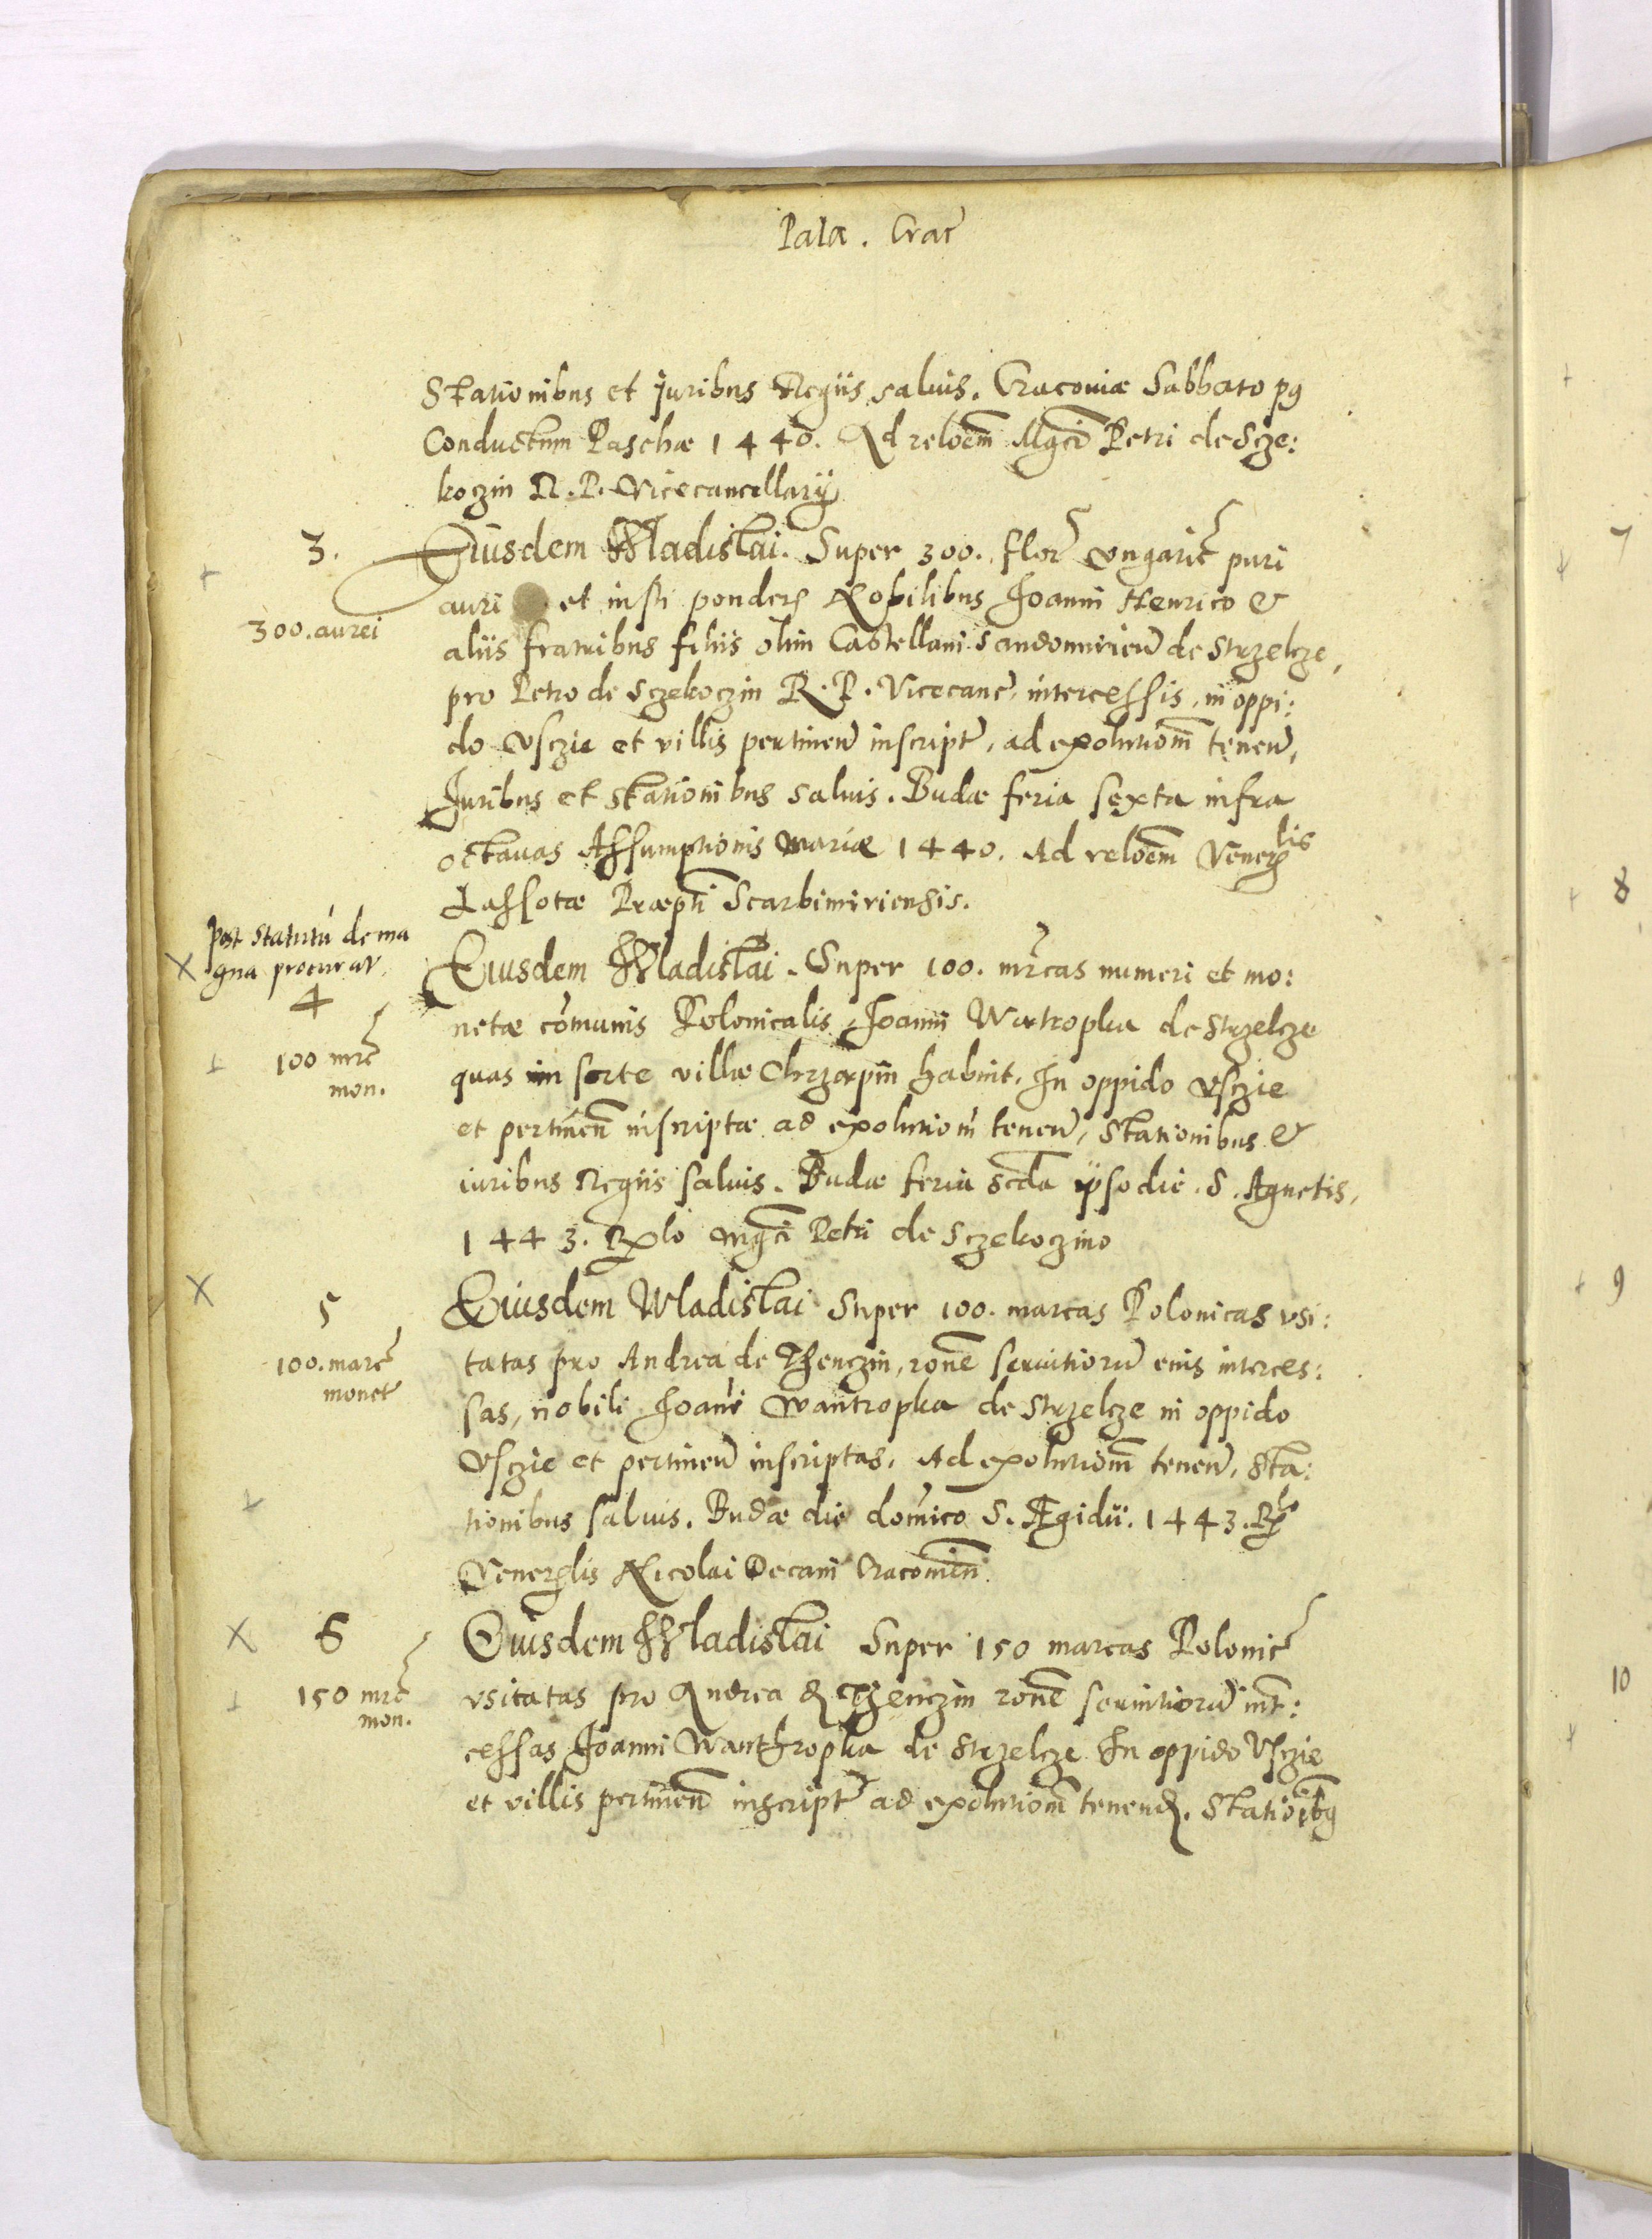 Pala. Crac
Stationibus et juribus Regiis saluis. Cracoviæ Sabbato pg
Conductum Paschæ 1440. Ad reloem Mgci Petri de Scze:
koczin R. P. Vicecancellarÿ
3.
Eiusdem Wladislai. Super 300. flor Ungaric puri
auri et iusti ponders Nobilibus Joanni Henrico &
300. aurei
aliis fratribus filiis olim Castellani Sandomirien de Strzelcze,
pro Petro de Sczekoczin R. P. Vicecanc, intercessis, in oppi:
do Usczie et villis pertinen inscript, ad exolutiom tenen,
Juribus et stationibus saluis. Budæ feria sexta infra
octauas Assumptionis Mariæ 1440. Ad reloem Venerlis
Lassotæ Præpti Scarbimiriensis.
post statutu de ma
gna procurat.
4
Eiusdem Wladislai. Super 100. mrcas numeri et mo:
netæ comunis Polonicalis Joanni Watropka de Strzelcze
100 mrc
mon.
quas in sorte villæ Chrzapin habuit, In oppido Usczie
et pertinen inscriptæ ad exolutiom tenen, Stationibus &
iuribus Regiis saluis. Budæ feria scda ipso die. S. Agnetis,
1443. Rlo Mgci Petri de Sczekoczino
5
Eiusdem Wladislai Super 100. marcas Polonicas usi:
100. marc
monet
tatas pro Andrea de Thenczin, rone seruitioru eius interces:
sas, nobili Joani Wantropka de Strzelcze in oppido
Usczie et pertinen inscriptas. Ad exolutiom tenen, Sta:
tionibus saluis. Budæ die domico S. Ægidii. 1443. Rlo
Venerlis Nicolai Decani Cracouien
6
Eiusdem Wladislai Super 150 marcas Polonic
150 mrc
mon.
usitatas pro Andrea d Thenczin rone seruitioru int:
cessas Joanni Wanthropka de Strzelcze In oppido Usczie
et villis pertinen inscript ad exolutiom tenend. Statioibg
7
8
9
10